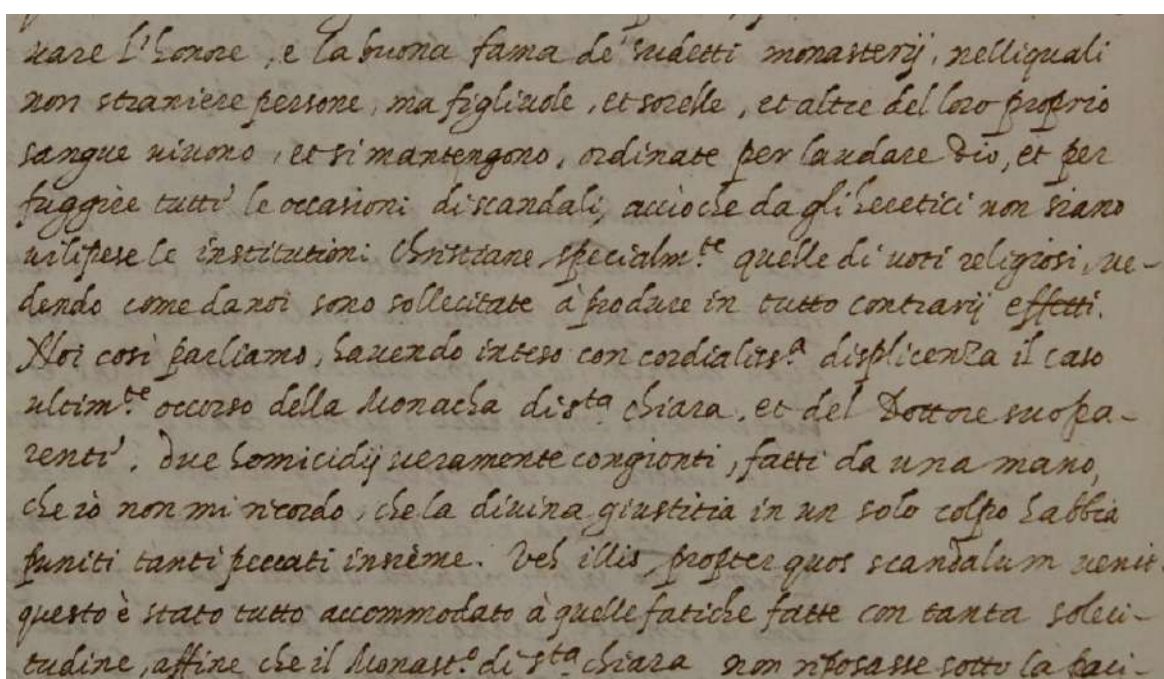 uare l'honore, e la buona fama de' sudetti monasterij, nelliquali
non straniere persone, ma figliuole, et sorelle, et altre del loro proprio
sangue uiuono, et si mantengono, ordinate per laudare Dio, et per
fuggire tutti le occasioni di scandali, acciòche da gli heretici non siano
uilipese le institutioni Christiane, specialm.te quelle di uoti religiosi, ue-
dendo come da noi sono sollecitate à produre in tutto contrarij effetti.
Noi così parliamo, hauendo inteso con cordialiss.a displicenza il caso
ultim.te occorso della Monacha di s.ta Chiara, et del Dottore suo pa-
rente. Due homicidij ueramente congionti, fatti da una mano,
che iò non mi ricordo, che la diuina giustitia in un solo colpo habbia
puniti tanti peccati insième. Veh illis, propter quos scandalum uenit.
questo è stato tutto accommodato à quelle fatiche fatte con tanta soleci-
tudine, affine che il Monast.o di s.ta Chiara non riposasse sotto la paci-